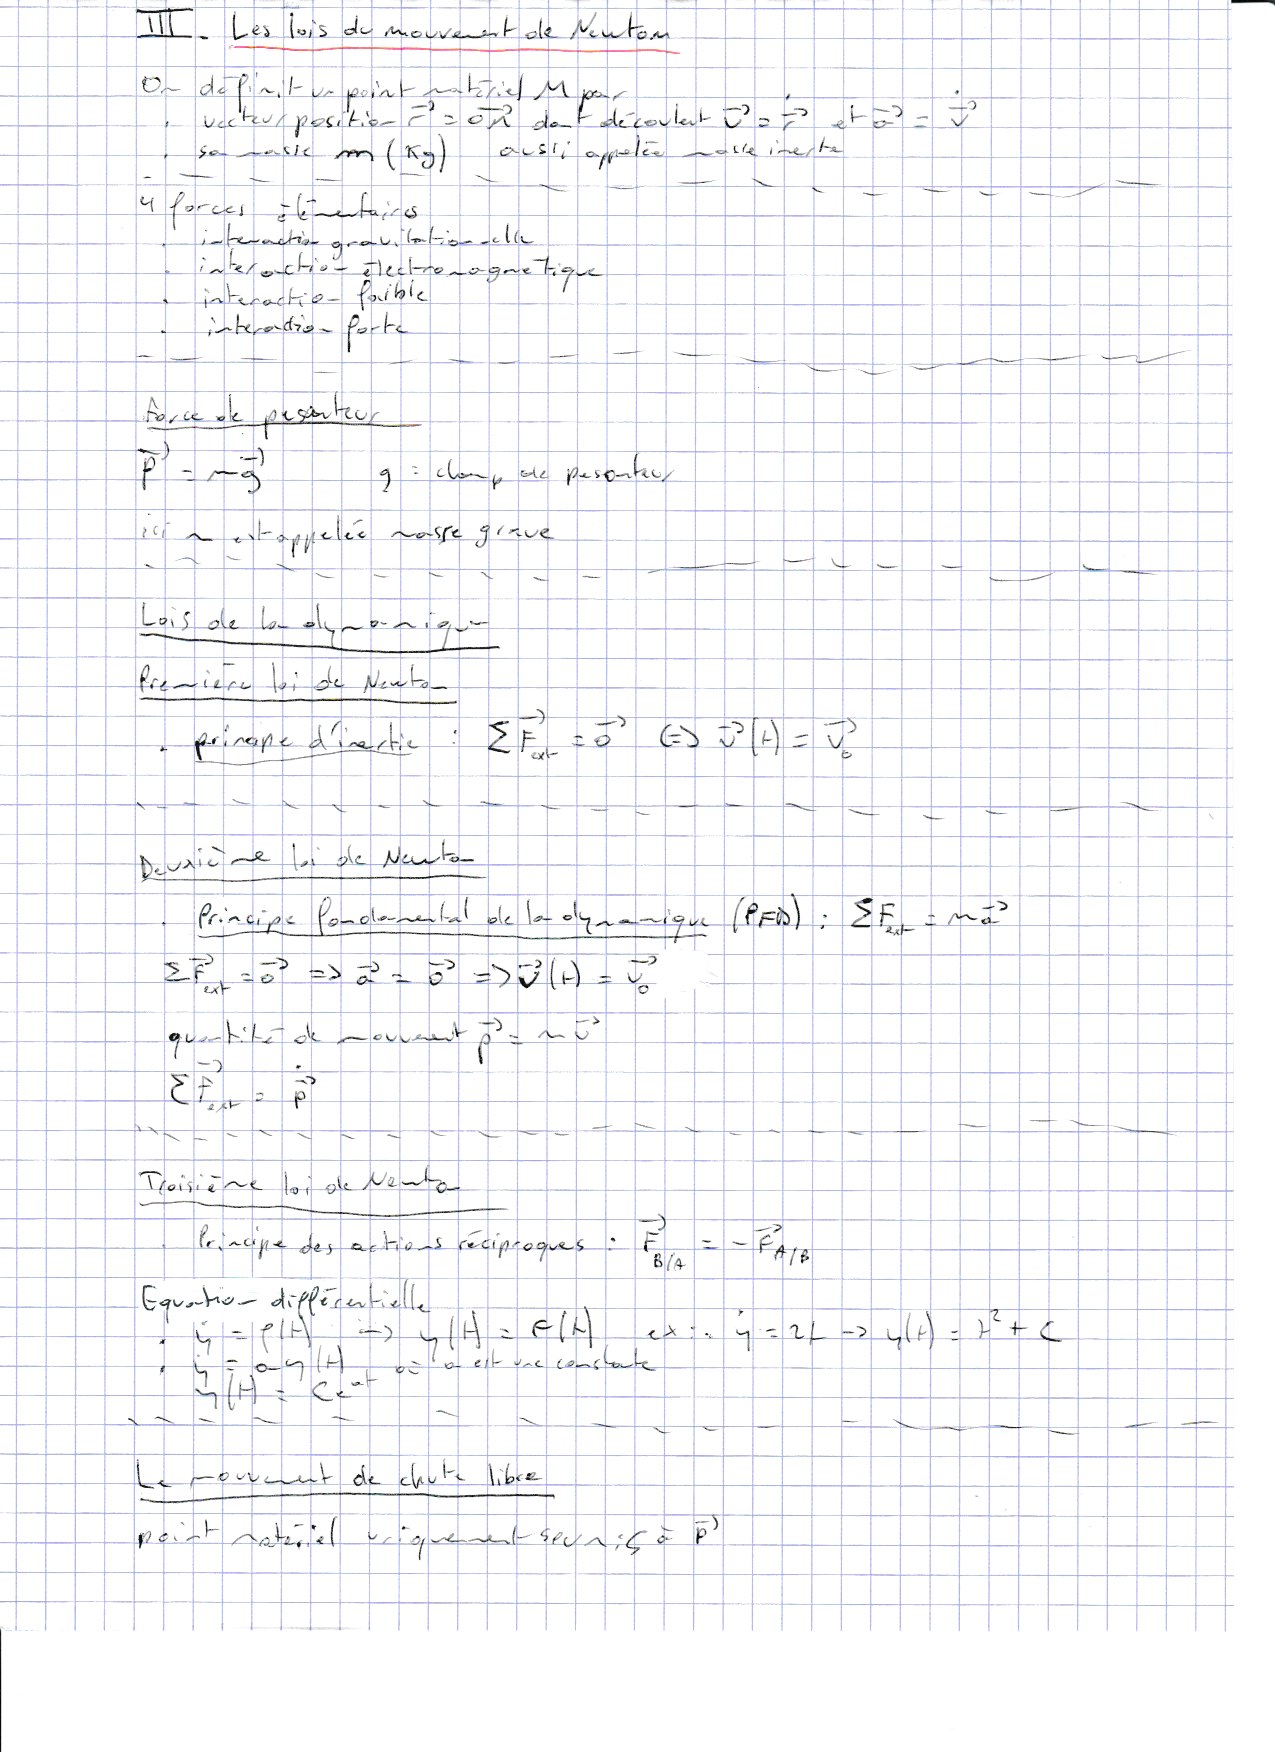 III. Les lois du mouvement de Newton
On définit un point matériel M par
. vecteur position r⃗ = OM⃗ dont découlent v⃗ = ṙ⃗ et a⃗ = v̇⃗
. sa masse m (Kg) aussi appelée masse inerte
4 forces élémentaires
. interaction gravitationnelle
. interaction électromagnétique
. interaction faible
. interaction forte
Force de pesanteur
P⃗ = mg⃗ g : champ de pesanteur
ici m est appelée masse grave
Lois de la dynamique
Première loi de Newton
. principe d'inertie : ΣF⃗ext = 0⃗ <=> v⃗(t) = v⃗₀
Deuxième loi de Newton
. Principe fondamental de la dynamique (PFD) : ΣFext = ma⃗
ΣF⃗ext = 0⃗ => a⃗ = 0⃗ => v⃗(t) = v⃗₀
quantité de mouvement p⃗ = mv⃗
ΣF⃗ext = ṗ⃗
Troisième loi de Newton
. Principe des actions réciproques : F⃗B/A = -F⃗A/B
Equation différentielle
. ẏ = f(t) -> y(t) = F(t) ex : ẏ = 2t -> y(t) = t² + C
. ẏ = a y(t), où a est une constante
y(t) = Ceᵃᵗ
Le mouvement de chute libre
point matériel uniquement soumis à P⃗